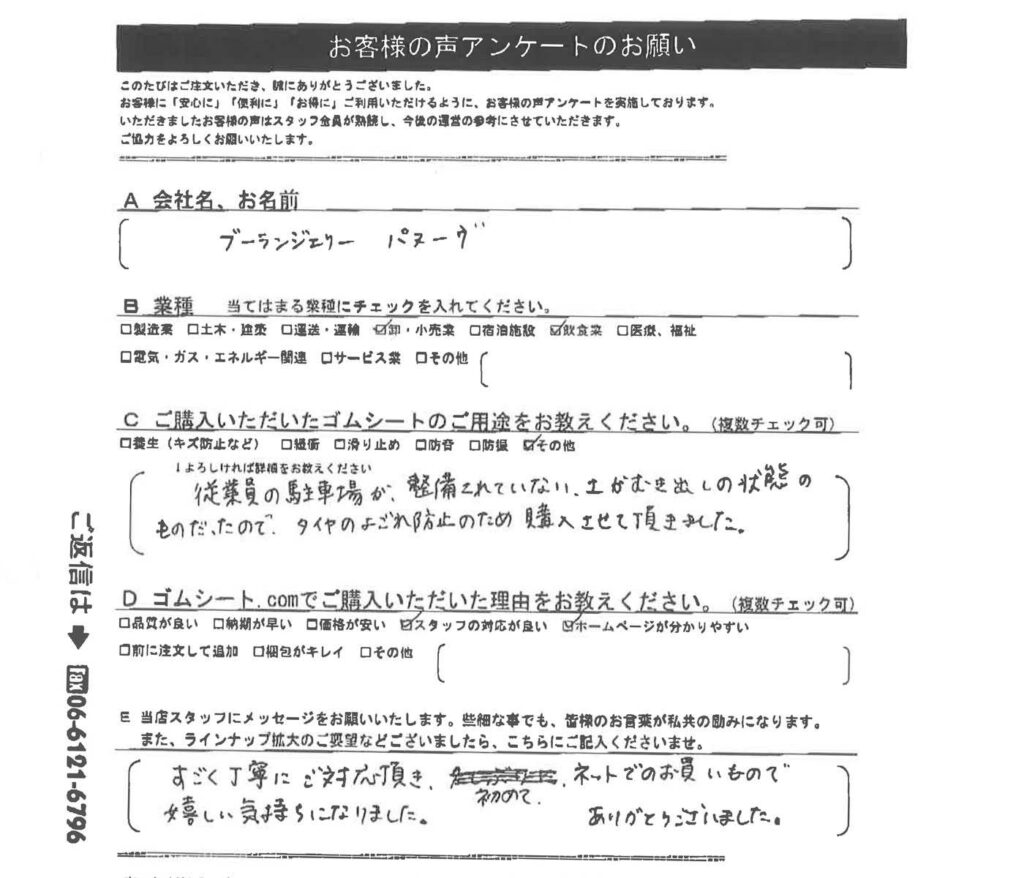 お客様の声アンケートのお願い
このたびはご注文いただき、誠にありがとうございました。
お客様に「安心に」「便利に」「お得に」ご利用いただけるように、お客様の声アンケートを実施しております。
いただきましたお客様の声はスタッフ全員が熟読し、今後の運営の参考にさせていただきます。
ご協力をよろしくお願いいたします。
A 会社名、お名前
ブーランジェリー パヌーヴ
B 業種 当てはまる業種にチェックを入れてください。
□製造業 □土木・建築 □運送・運輸 ☑卸・小売業 □宿泊施設 ☑飲食業 □医療、福祉
□電気・ガス・エネルギー関連 □サービス業 □その他
C ご購入いただいたゴムシートのご用途をお教えください。(複数チェック可)
□養生(キズ防止など) □緩衝 □滑り止め □防音 □防振 ☑その他
↓よろしければ詳細をお教えください
従業員の駐車場が、整備されていない、土がむき出しの状態の
ものだったので、タイヤのよごれ防止のため購入させて頂きました。
D ゴムシート.comでご購入いただいた理由をお教えください。(複数チェック可)
□品質が良い □納期が早い □価格が安い ☑スタッフの対応が良い ☑ホームページが分かりやすい
□前に注文して追加 □梱包がキレイ □その他
E 当店スタッフにメッセージをお願いいたします。些細な事でも、皆様のお言葉が私共の励みになります。
また、ラインナップ拡大のご要望などございましたら、こちらにご記入くださいませ。
すごく丁寧にご対応頂き、初めて、ネットでのお買いもので
嬉しい気持ちになりました。 ありがとうございました。
ご返信は➡fax06-6121-6796